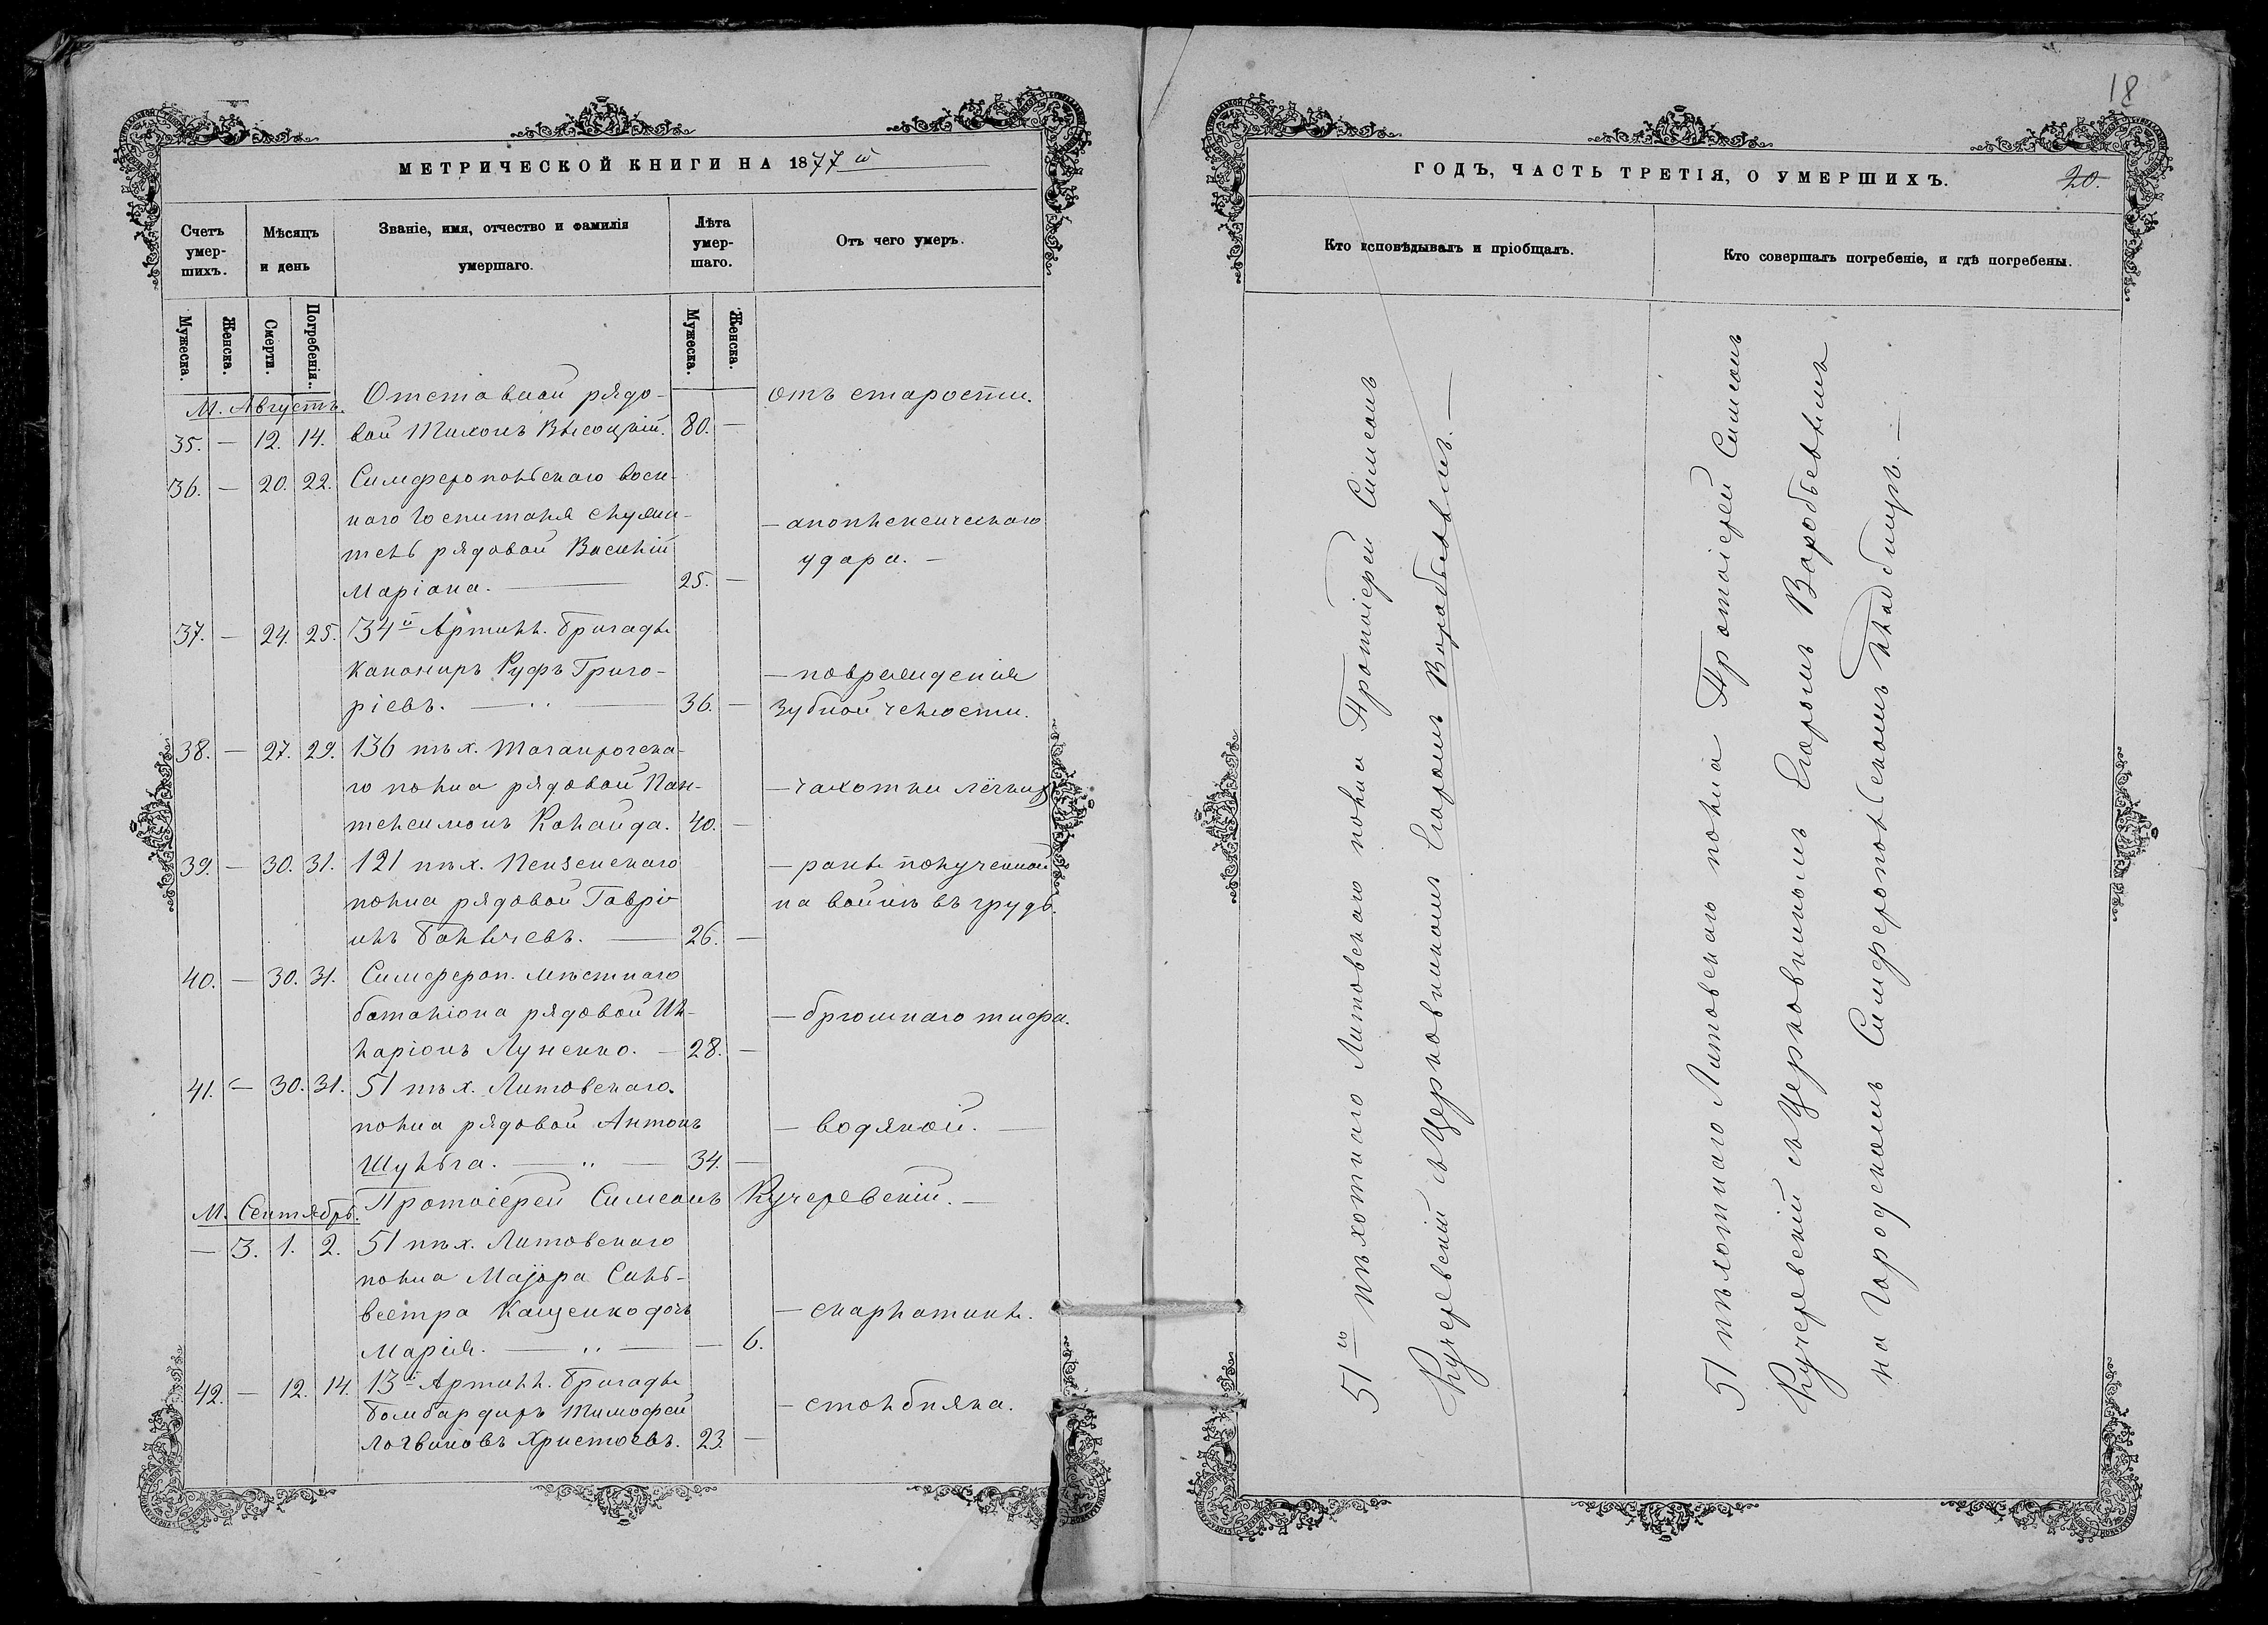 МЕТРИЧЕСКОЙ КНИГИ НА 1877й
Счетъ умер-шихъ.
Мѣсяцъ и день
Званіе, имя, отчество и фамилія умершаго.
Лѣта умер-шаго.
Отъ чего умеръ.
Мужеска.
Женска.
Смерти.
Погребенія.
Мужеска.
Женска.
М. Августъ.
Отставной рядо- отъ старости.
35. — 12. 14. вой Тихонъ Высоцкій. 80. —
36. — 20. 22. Симферопольскаго воен-
наго госпиталя служи- — апоплексическаго
тель рядовой Василій удара. —
Маріана. — 25. —
37. — 24. 25. 34й Артилл. бригады
канониръ Руфъ Григо- — поврежденія
ріевъ. — „ — 36. — зубной челюсти.
38. — 27. 29. 136 пѣх. Таганрогска-
го полка рядовой Пан- — чахотки лёгкихъ
телеимонъ Колайда. 40. —
39. — 30. 31. 121 пѣх. Пензенскаго — раны полученной
полка рядовой Гаврі- на войнѣ въ грудь.
илъ Балычевъ. — 26. —
40. — 30. 31. Симфероп. мѣстнаго
баталіона рядовой Ил- — брюшнаго тифа.
ларіонъ Луненко. — 28. —
41. — 30. 31. 51 пѣх. Литовскаго
полка рядовой Антонъ — водяной. —
Шульга. — „ — 34. —
Протоіерей Симеонъ Кучеревскій. —
М. Сентябрь.
— 3. 1. 2. 51 пѣх. Литовскаго
полка Маіора Силь-
вестра Кащенко дочь — скарлатины.
Марія. — „ — — 6.
42. — 12. 14. 13й Артилл. бригады
бомбардиръ Тимофей — столбняка.
Логвиновъ Христовъ. 23. —
18
ГОДЪ, ЧАСТЬ ТРЕТІЯ, О УМЕРШИХЪ.
20.
Кто исповѣдывалъ и пріобщалъ.
Кто совершалъ погребеніе, и гдѣ погребены.
51го пѣхотнаго Литовскаго полка Протоіерей Симеонъ
Кучеревскій съ Церковникомъ Егоромъ Воробьевымъ. —
51 пѣхотнаго Литовскаго полка Протоіерей Симеонъ
Кучеревскій съ Церковникомъ Егоромъ Воробьевымъ
на Городскомъ Симферопольскомъ кладбищѣ. —